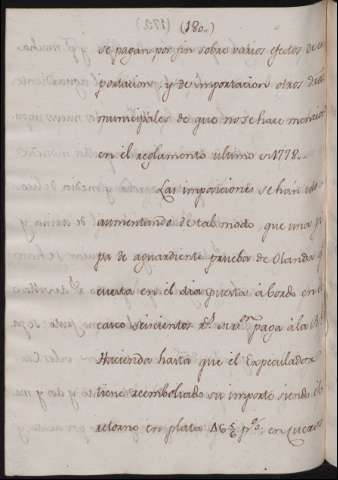 (180..)
se pagan por fin sobre varios efectos de
portacion y de importacion otros
municipales de que no se hace mencion
en el reglamento ultimo en 1778..
Las imposiciones se han
aumentando de tal modo, que una
pa de aguardiente prueba de Olanda
cuesta en el dia puesta á bordo en
casco seicientos r.s paga á la
Hacienda hasta que el Expeculador
tiene reembolsado su importe siendo
retorno en plata p.s en Cueros